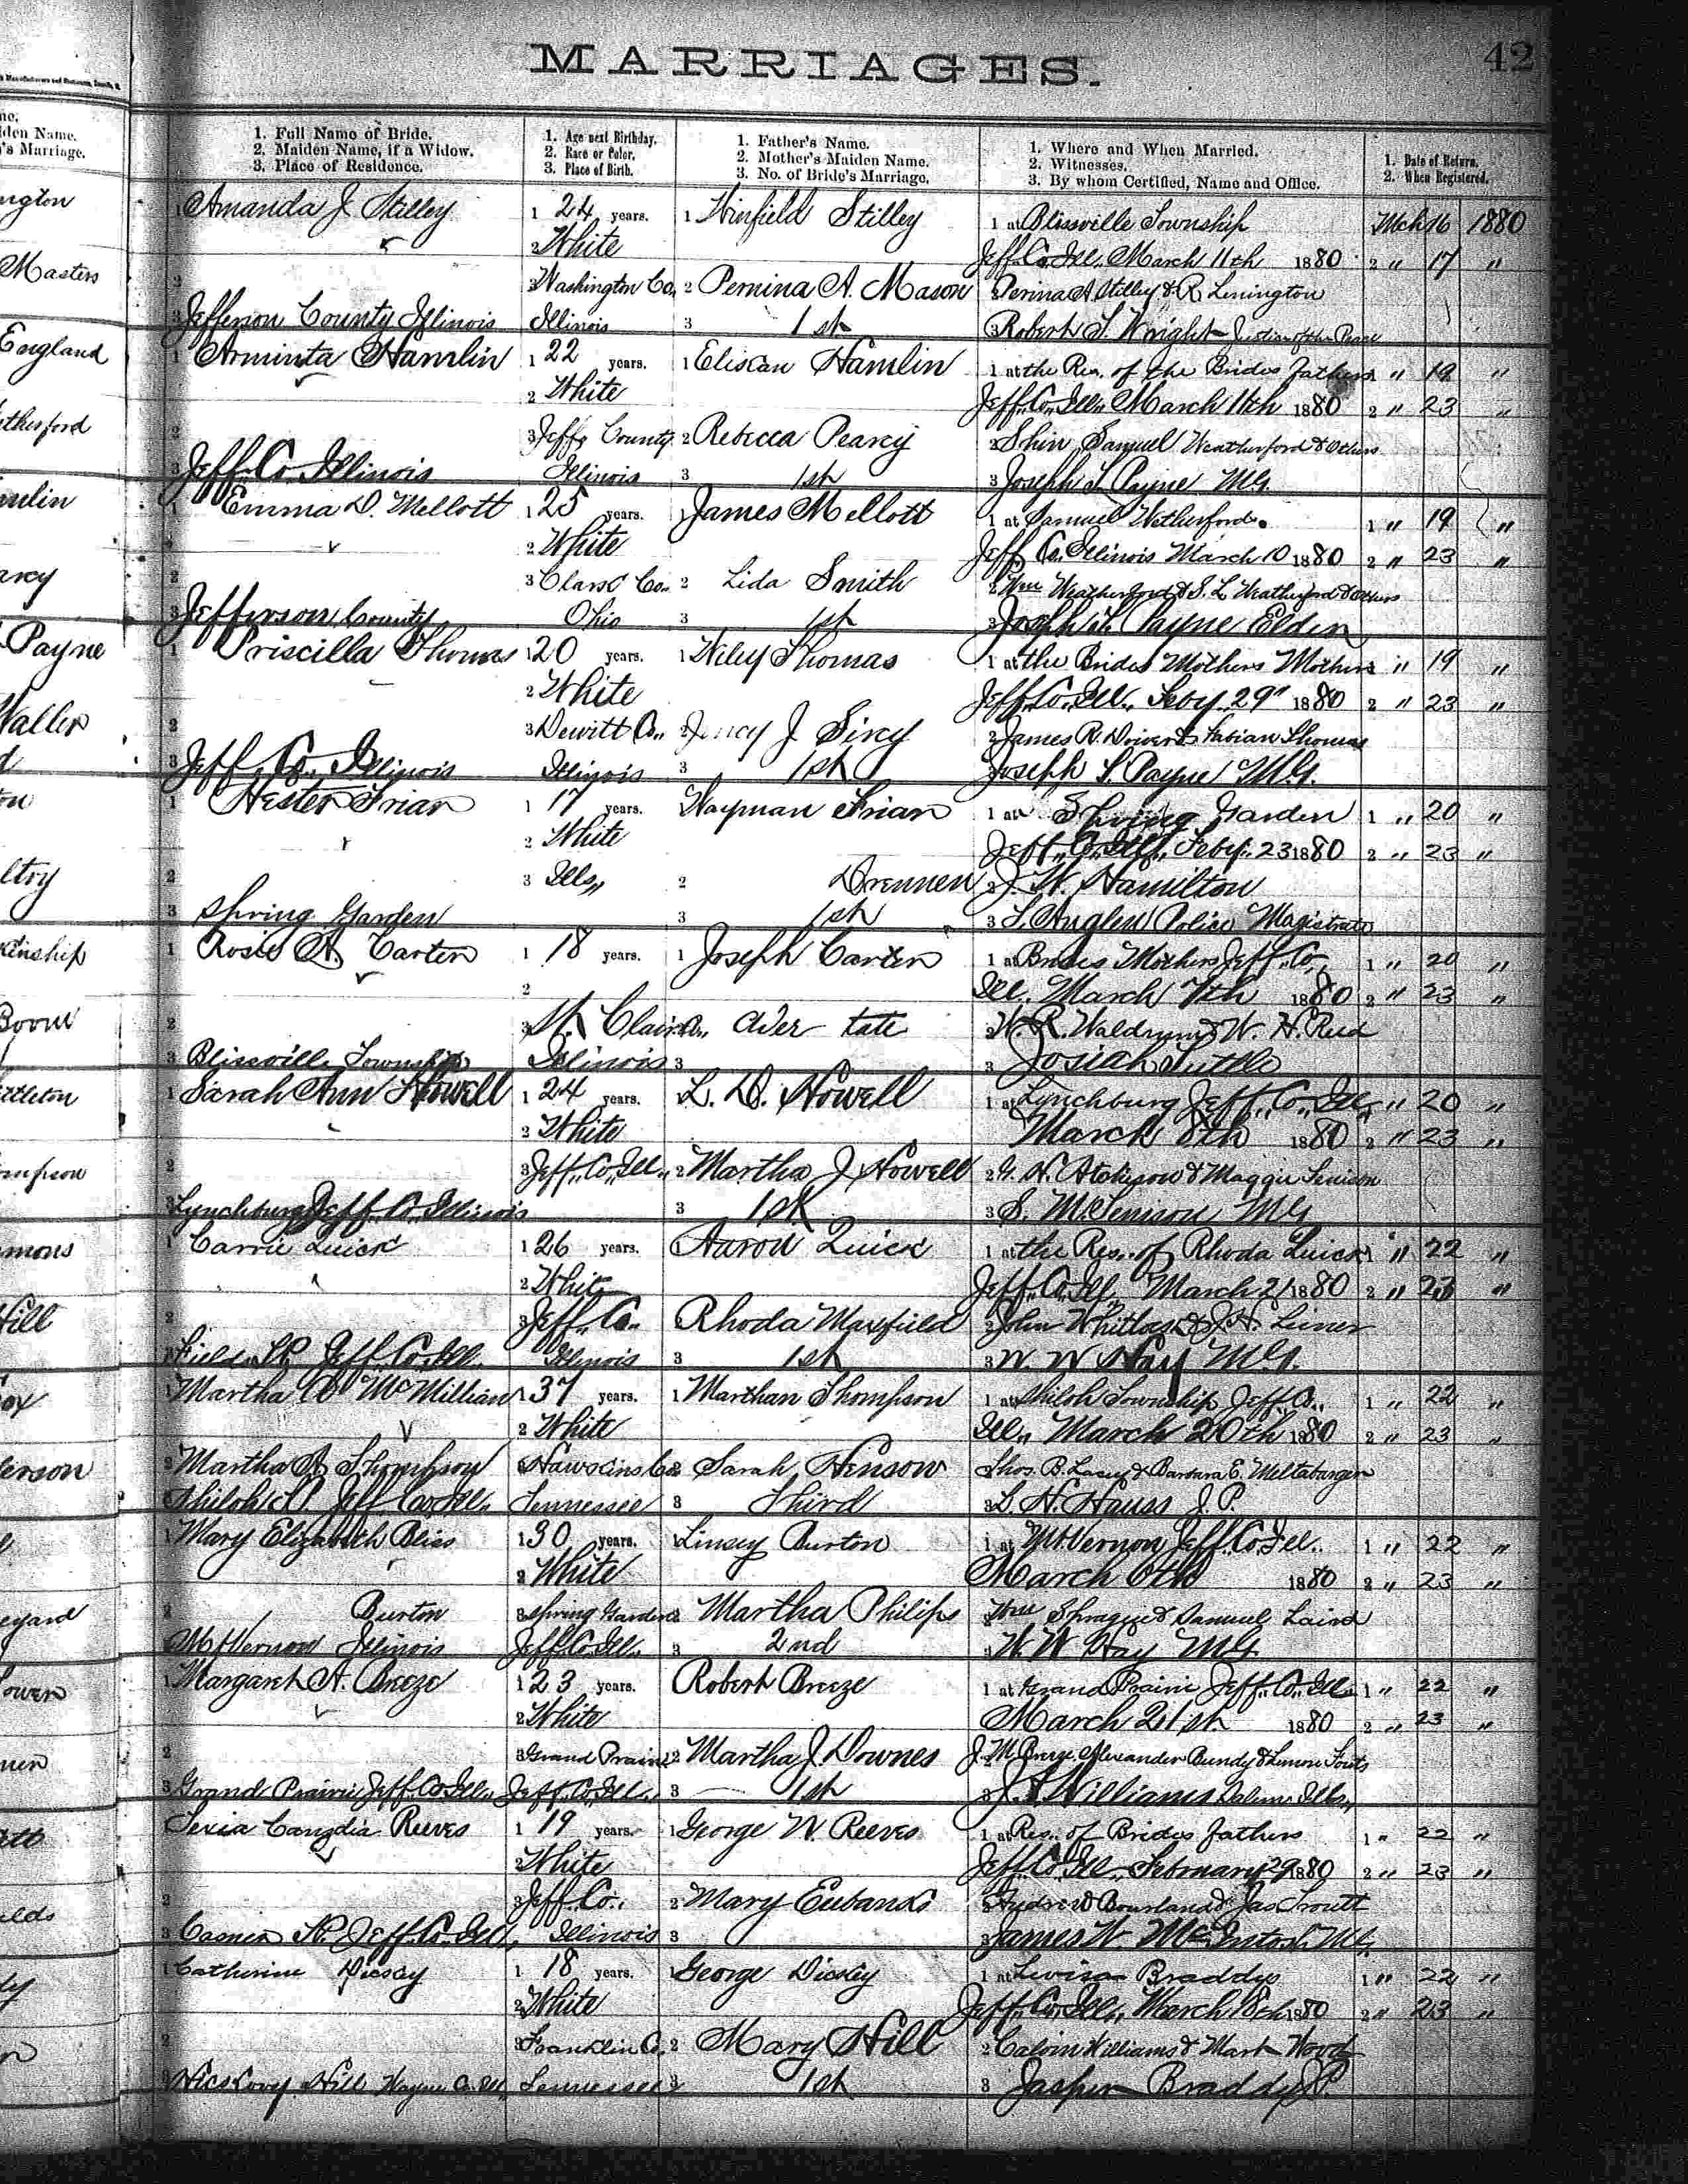 MARRIAGES.
42
1. Full Name of Bride.
2. Maiden Name, if a Widow.
3. Place of Residence.
1. Age next Birthday.
2. Race or Color.
3. Place of Birth.
1. Father's Name.
2. Mother's Maiden Name.
3. No. of Bride's Marriage.
1. Where and When Married.
2. Witnesses.
3. By whom Certified, Name and Office.
1. Date of Return.
2. When Registered.
1 Amanda J Stilley 1 24 years. 1 Winfield Stilley 1 at Blissville Township Mch 16 1880
2 White Jeff. Co. Ill. March 11th 1880 2 " 17 "
2 3 Washington Co. 2 Pemina A. Mason 2 Perina A Stilley & R Linington
3 Jefferson County Illinois Illinois 3 1st 3 Robert S. Wright Justice of the Peace
1 Arminta Hamlin 1 22 years. 1 Eliscan Hamlin 1 at the Res. of the Brides Fathers 1 " 19 "
2 White Jeff. Co. Ill. March 11th 1880 2 " 23 "
2 3 Jeff. County 2 Rebecca Pearcy 2 Samuel Weatherford & Others
3 Jeff. Co. Illinois Illinois 3 1st 3 Joseph S Payne MG.
1 Emma D. Mellott 1 25 years. 1 James Mellott 1 at Samuel Wetherfords. 1 " 19 "
2 White Jeff Co. Illinois March 10 1880 2 " 23 "
2 3 Co.. 2 Lida Smith 2 Wm Weatherford & S. L Weatherford & Others
3 Jefferson County Ohio 3 1st 3 Joseph Payne Elder
1 Priscilla Thomas 1 20 years. 1 Wiley Thomas 1 at the Brides Mothers Mothers 1 " 19 "
2 White Jeff. Co. Ill. Feby. 29" 1880 2 " 23 "
2 3 Dewitt Co.. 2 J 2 James R. & Fabian Thomas
3 Jeff. Co. Illinois Illinois 3 1st 3 Joseph S. Payne M.G.
1 Hester Friar 1 17 years. Wayman Friar 1 at Spring Garden 1 " 20 "
2 White Jeff. Co. Ill. Feby. 23 1880 2 " 23 "
2 3 Ills,, 2 Drennen 2 J. W. Hamilton
3 Spring Garden 3 1st 3 Police Magistrate
1 Rosie A. Carter 1 18 years. 1 Joseph Carter 1 at Brides Mothers Jeff. Co. 1 " 20 "
2 Ill. March 7th 1880 2 " 23 "
2 3 St. Clair Co.. tate 2 W. R. Waldrum & W. H. Reid
3 Blissville Township Illinois 3 3 Josiah Tuttle
1 Sarah Ann Howell 1 24 years. 1 L. D. Howell 1 at Lynchburg Jeff. Co. Ill. " 20 "
2 White March 8th 1880 2 " 23 "
2 3 Jeff. Co. Ill.. 2 Martha J Howell 2 G. H. Atchison & Maggie Tenison
3 Lynchburg Jeff. Co. Illinois 3 1st 3 S. M. Tenison MG
1 Carrie Quick 1 26 years. Aaron Quick 1 at the Res. of Rhoda Quick 1 " 22 "
2 White Jeff. Co. Ill. March 21 1880 2 " 23 "
2 3 Jeff. Co. Rhoda Maxfield 2 John Whitlock & J. H.
3 Field Tp. Jeff. Co. Ill. Illinois 3 1st 3 W. W Hay MG.
1 Martha McMillian 1 37 years. 1 Marthan Thompson 1 at Shiloh Township Jeff. Co.. 1 " 22 "
2 White Ill.. March 20th 1880 2 " 23 "
2 Martha A Thompson 3 Hawkins Co 2 Sarah Henson Thos. B. Lacey & Barbara E. Meltabarger
Shiloh Tp. Jeff Co. Ill. Tennessee 3 Third 3 L. H. Hauss J. P.
1 Mary Elizabeth Bliss 1 30 years. 1 Linsey Burton 1 at Mt. Vernon Jeff. Co. Ill.. 1 " 22 "
2 White March 6th 1880 2 " 23 "
2 Burton 3 Spring Garden 2 Martha Philips 2 Wm Sprague & Samuel Laird
Mt Vernon Illinois Jeff. Co. Ill. 3 2nd 3 W. W Hay MG
1 Margaret A. Breeze 1 23 years. Robert Breeze 1 at Grand Prairie Jeff. Co. Ill. 1 " 22 "
2 White March 21st 1880 2 " 23 "
2 3 Grand Prairie 2 Martha J. Downes J. M Breeze Alexander Bundy &
3 Grand Prairie Jeff. Co. Ill. Jeff. Co. Ill. 3 1st 3 J. Williams Salem Ills,,
Reeves 1 19 years. 1 George W. Reeves 1 at Res. of Brides Fathers 1 " 22 "
2 White Jeff. Co. Ill. February 29 1880 2 " 23 "
2 3 Jeff. Co. 2 Mary Eubanks 2 Andrew Bourland & Jas Troutt
3 Casner Tp. Jeff. Co. Ill. Illinois 3 3 James W. McIntosh MG.
1 Catherine 1 18 years. 1 George 1 at Braddys 1 " 22 "
2 White Jeff. Co. Ill.. March 18th 1880 2 " 23 "
2 3 Franklin Co. 2 Mary Hill 2 Calvin Williams & Mark Wood
3 Hickory Hill Wayne Co. Ill. Tennessee 3 1st 3 Jasper Braddy JP